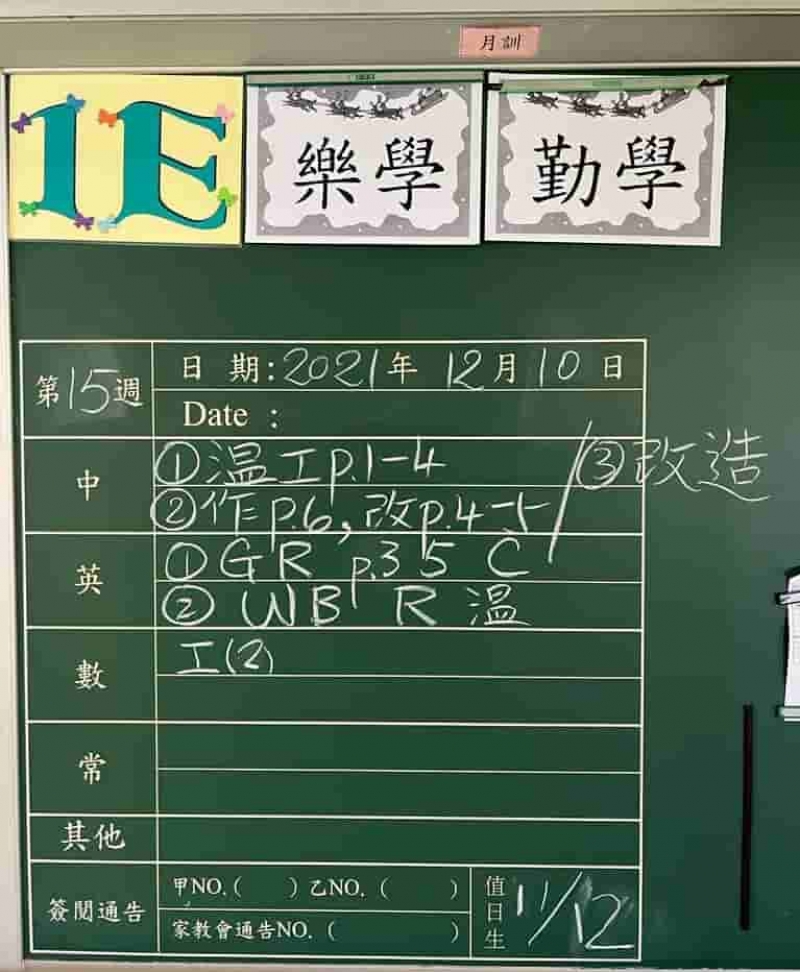 月訓
1E 樂學 勤學
第15週
日 期:2021年 12月10日
Date :
中
①温工p.1-4
②作p.6,改p.4-5 / ③改造
英
①GR p.35 C
②WB R 温
數
工(2)
常
其他
簽閱通告
甲NO.( ) 乙NO. ( )
家教會通告NO. ( )
值日生 11/12